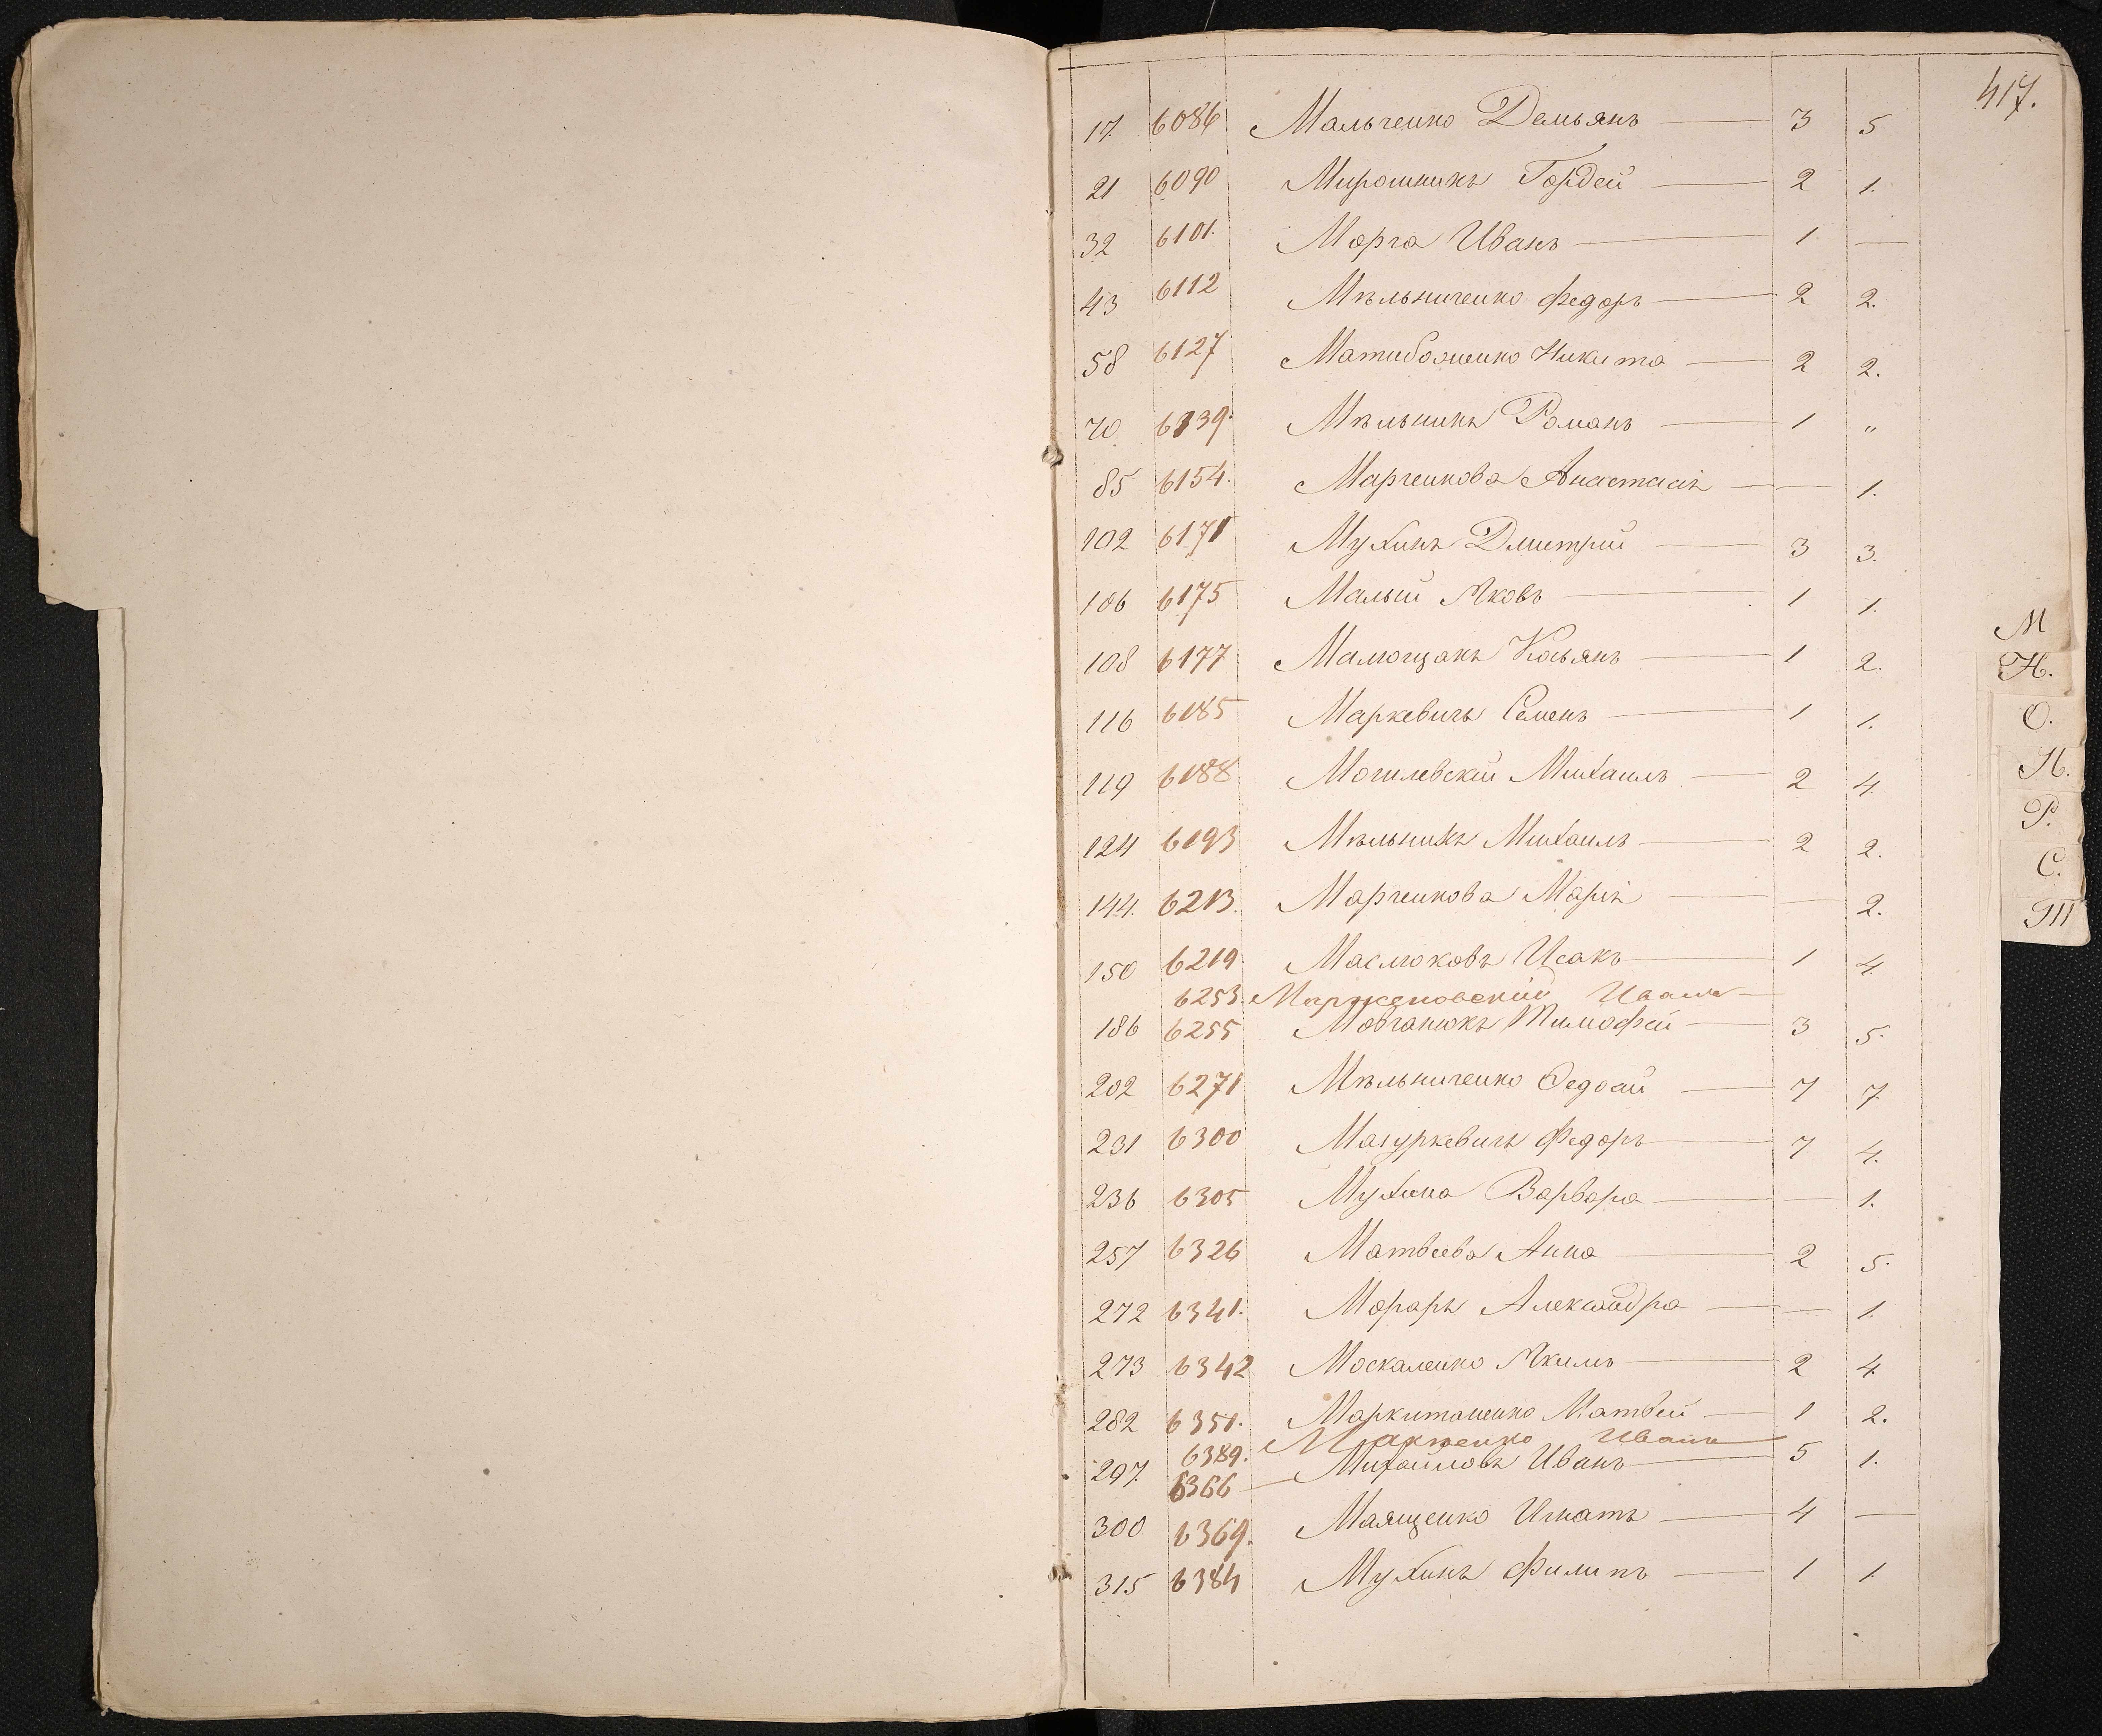 417.
17. 6086 Мальченко Демьянъ — 3 5
21 6090 Мирошникъ Гордей — 2 1.
32 6101. Морга Иванъ — 1 —
43 6112 Мѣльниченко Федоръ — 2 2.
58 6127 Матибоженко Никита — 2 2.
70. 6139. Мѣльникъ Романъ — 1 "
85 6154. Марченкова Анастасія — — 1.
102 6171 Мухинъ Дмитрій — 3 3.
106 6175 Малый Яковъ — 1 1.
108 6177 Касьянъ — 1 2.
116 6185 Маркевичъ Семенъ — 1 1.
119 6188 Могилевскій Михаилъ — 2 4.
124 6193 Мѣльникъ Михаилъ — 2 2.
144. 6213. Марченкова Марія — — 2.
150 6219 Маслюковъ Исакъ — 1 4.
6253. Иванъ —
186 6255 Мовчанюкъ Тимофей — 3 5.
202 6271 Мѣльниченко Федосій — 7 7.
231 6300 Мазуркевичъ Федоръ — 7 4.
236 6305 Мухина Варвара — — 1.
257 6326 Матвеева Анна — 2 5.
272 6341. Морарь Александра — — 1.
273 6342 Москаленко Якимъ — 2 4.
282 6351. Маркитаненко Матвей — 1 2.
6389. Иванъ —
297. 6366 — Михайловъ Иванъ — 5 1.
300 6369. Маященко Игнатъ — 4 —
315 6384 Мухинъ Филипъ — 1 1.
М
Н.
О.
П.
Р.
С.
Т